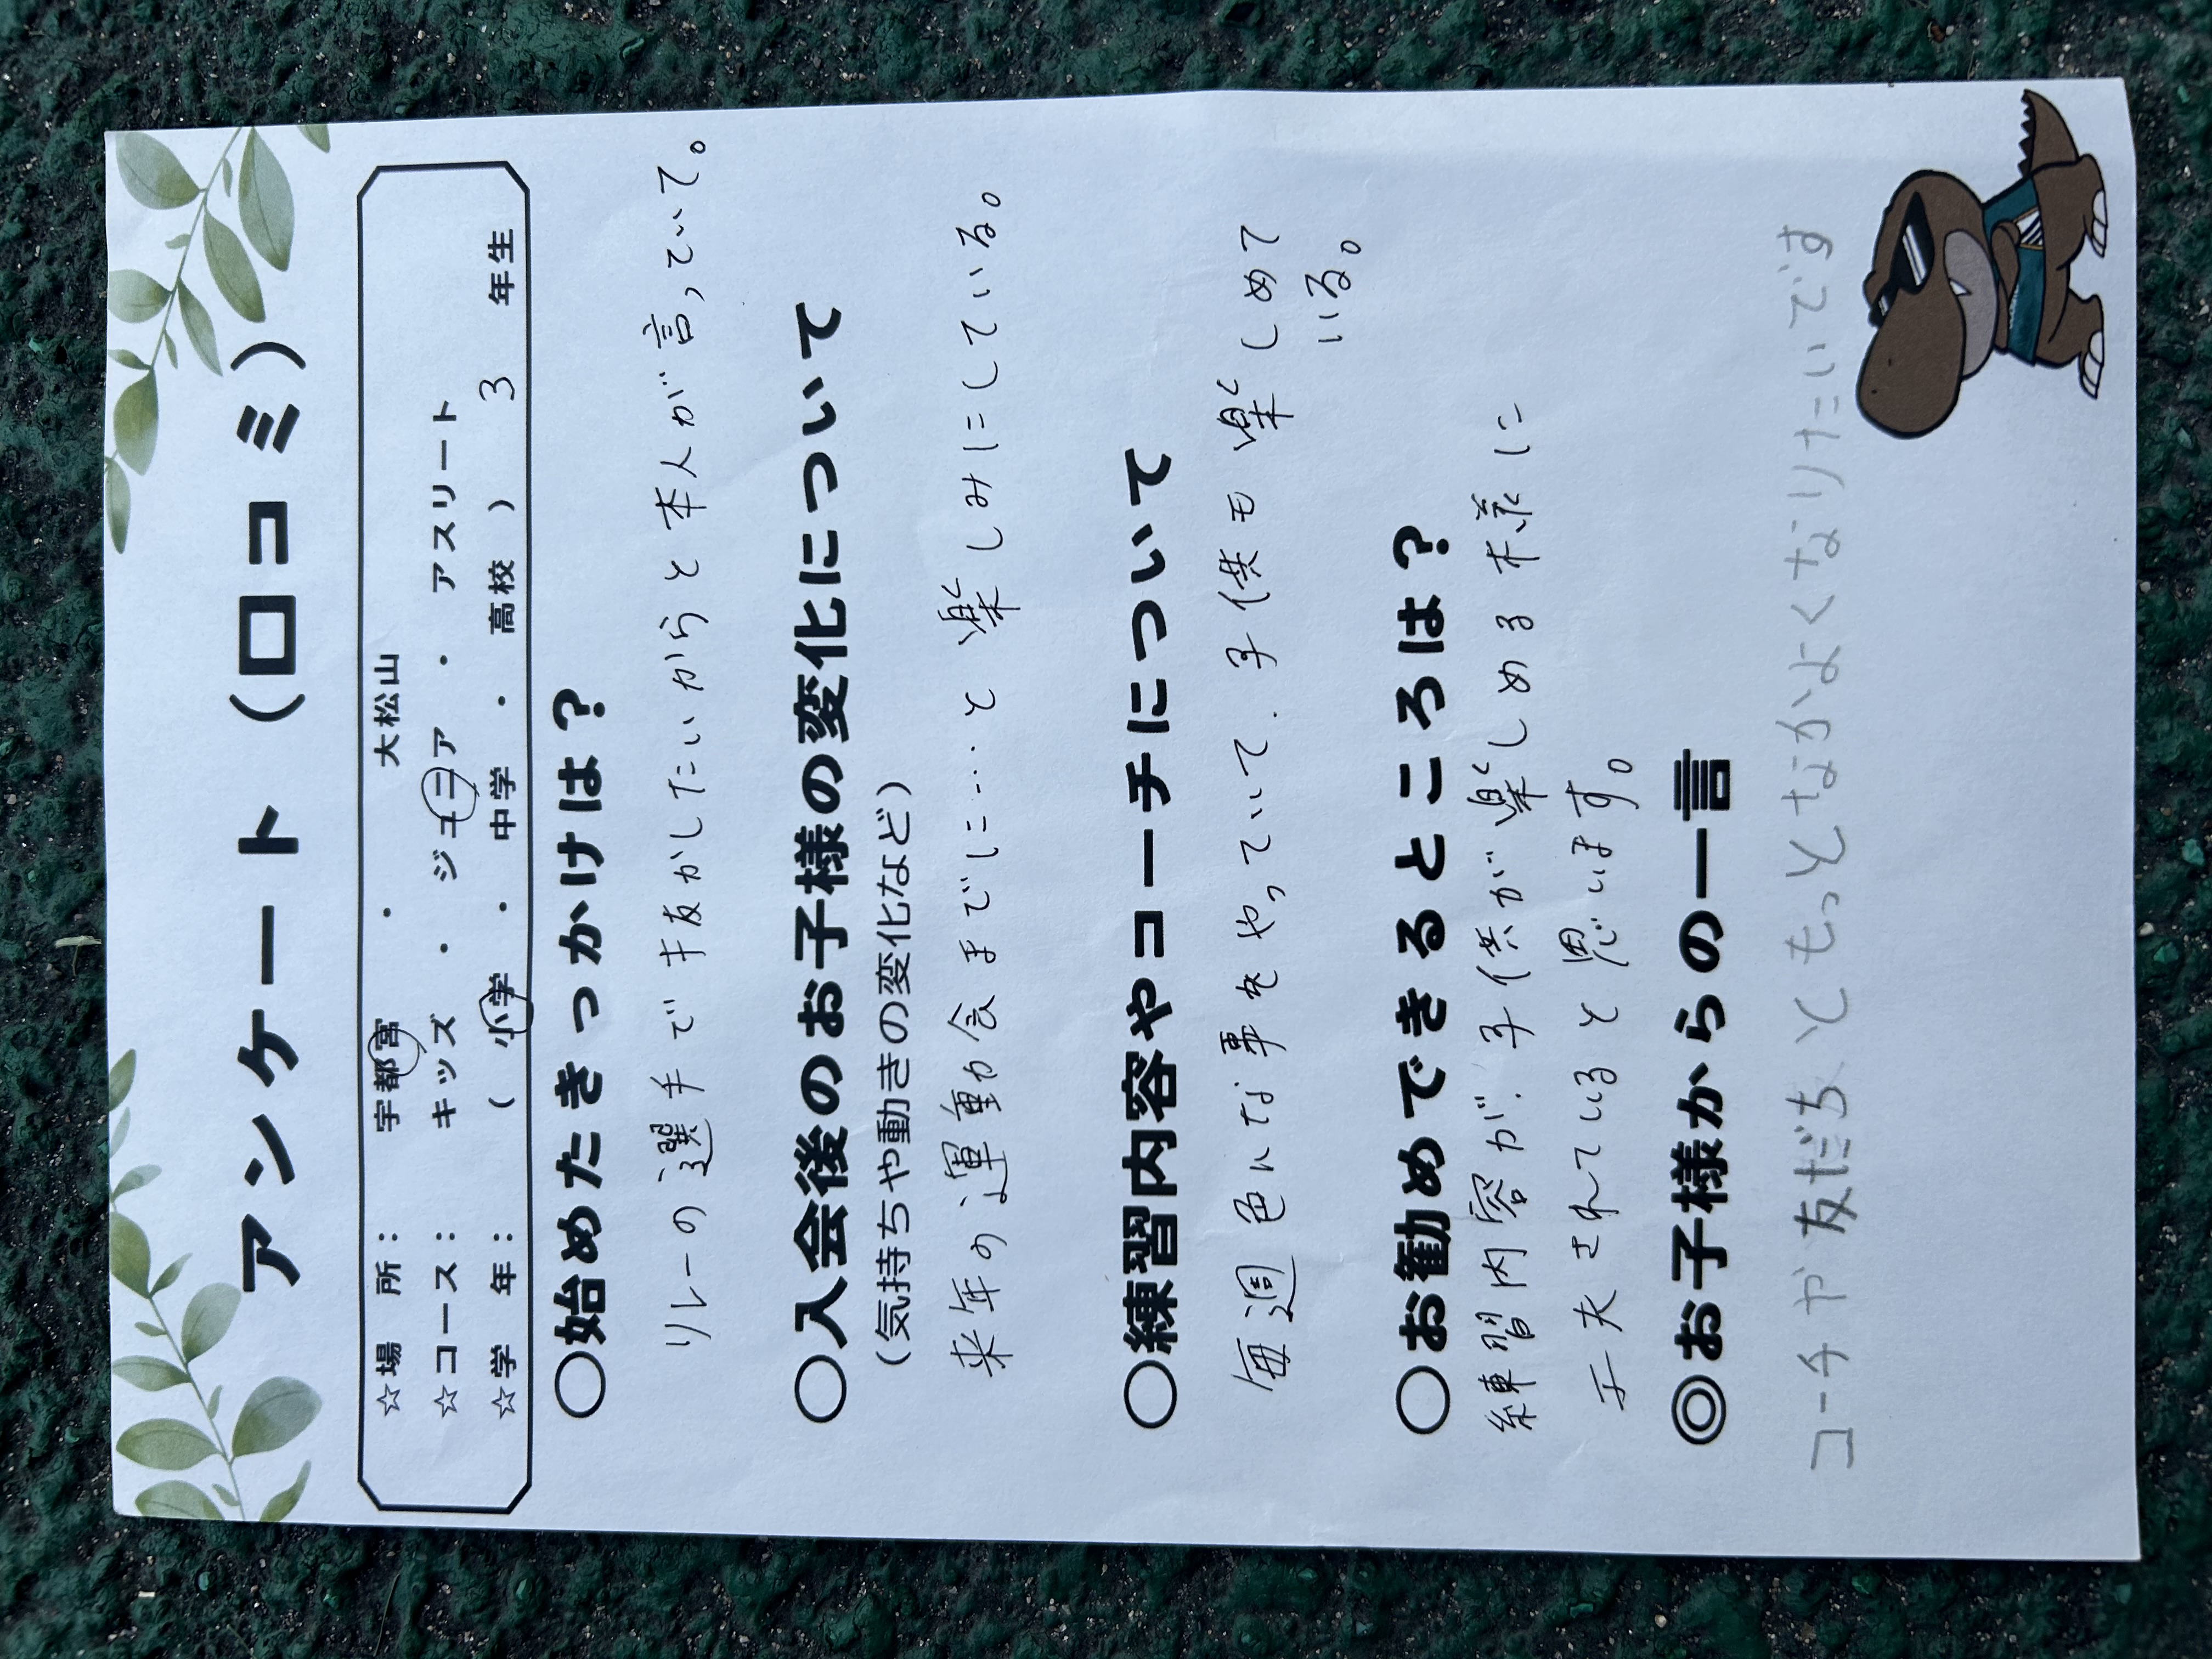 アンケート（口コミ）
☆場　所：　宇都宮　・　大松山
☆コース：　キッズ　・　ジュニア　・　アスリート
☆学　年：（　小学　・　中学　・　高校　）　3　年生
○始めたきっかけは？
リレーの選手で抜かしたいからと本人が言っていて。
○入会後のお子様の変化について
（気持ちや動きの変化など）
来年の運動会までに…と楽しみにしている。
○練習内容やコーチについて
毎週色んな事をやっていて、子供も楽しめて
いる。
○お勧めできるところは？
練習内容が、子供が楽しめる様に
工夫されていると思います。
◎お子様からの一言
コーチや友だちともっとなかよくなりたいです